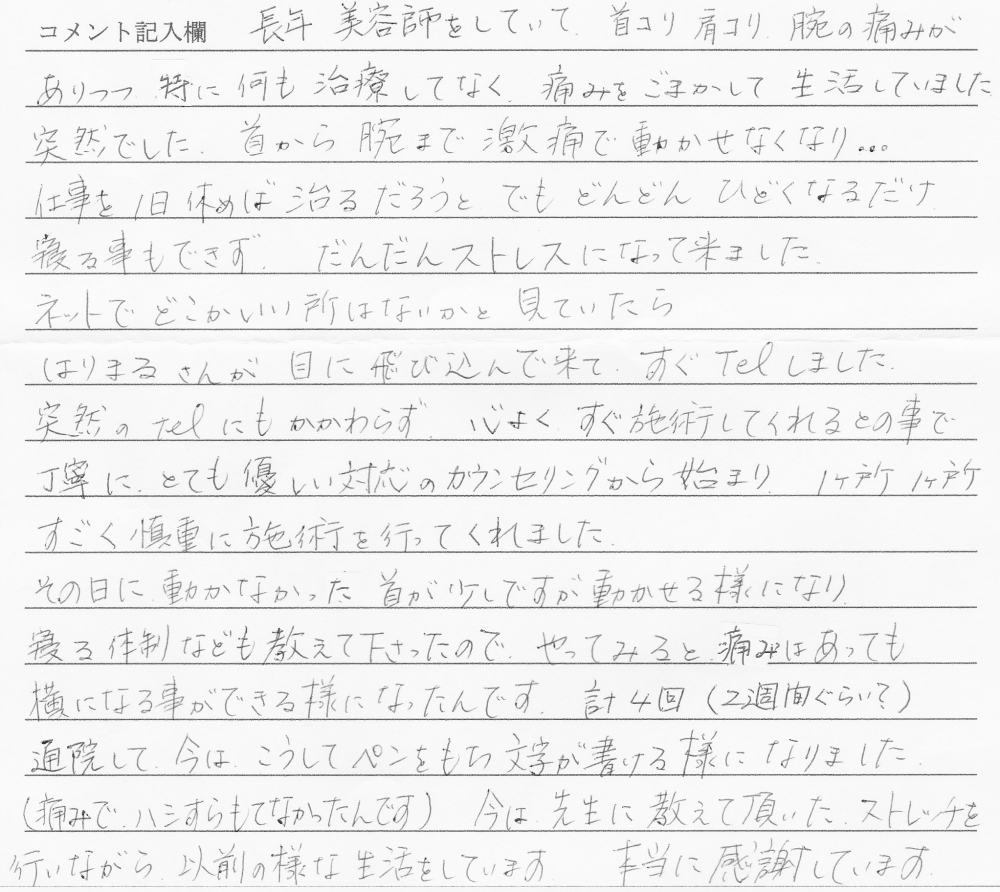 コメント記入欄 長年 美容師をしていて、首コリ 肩コリ、腕の痛みが
ありつつ、特に 何も 治療 してなく、痛みを ごまかして 生活していました
突然でした、首から 腕まで 激痛で 動かせなくなり...
仕事を 1日 休めば 治るだろうと でも どんどん ひどくなるだけ
寝る事もできず、だんだんストレスになって来ました。
ネットで どこかいい所はないかと 見ていたら
はりまるさんが 目に 飛び込んで来て、すぐ Tel しました。
突然の tel にも かかわらず、心よく すぐ施術してくれるとの事で
丁寧に、とても優しい対応のカウンセリングから 始まり、1ヶ所 1ヶ所
すごく 慎重に施術を行ってくれました。
その日に 動かなかった 首が少しですが動かせる様になり
寝る 体制なども教えて下さったので、やってみると、痛みはあっても
横になる事ができる様になったんです。計4回 (2週間ぐらい?)
通院して、今は、こうしてペンをもち 文字が書ける様になりました。
(痛みで、ハシすらもてなかったんです) 今は、先生に 教えて頂いた、ストレッチを
行いながら、以前の様な生活をしています。本当に感謝しています。